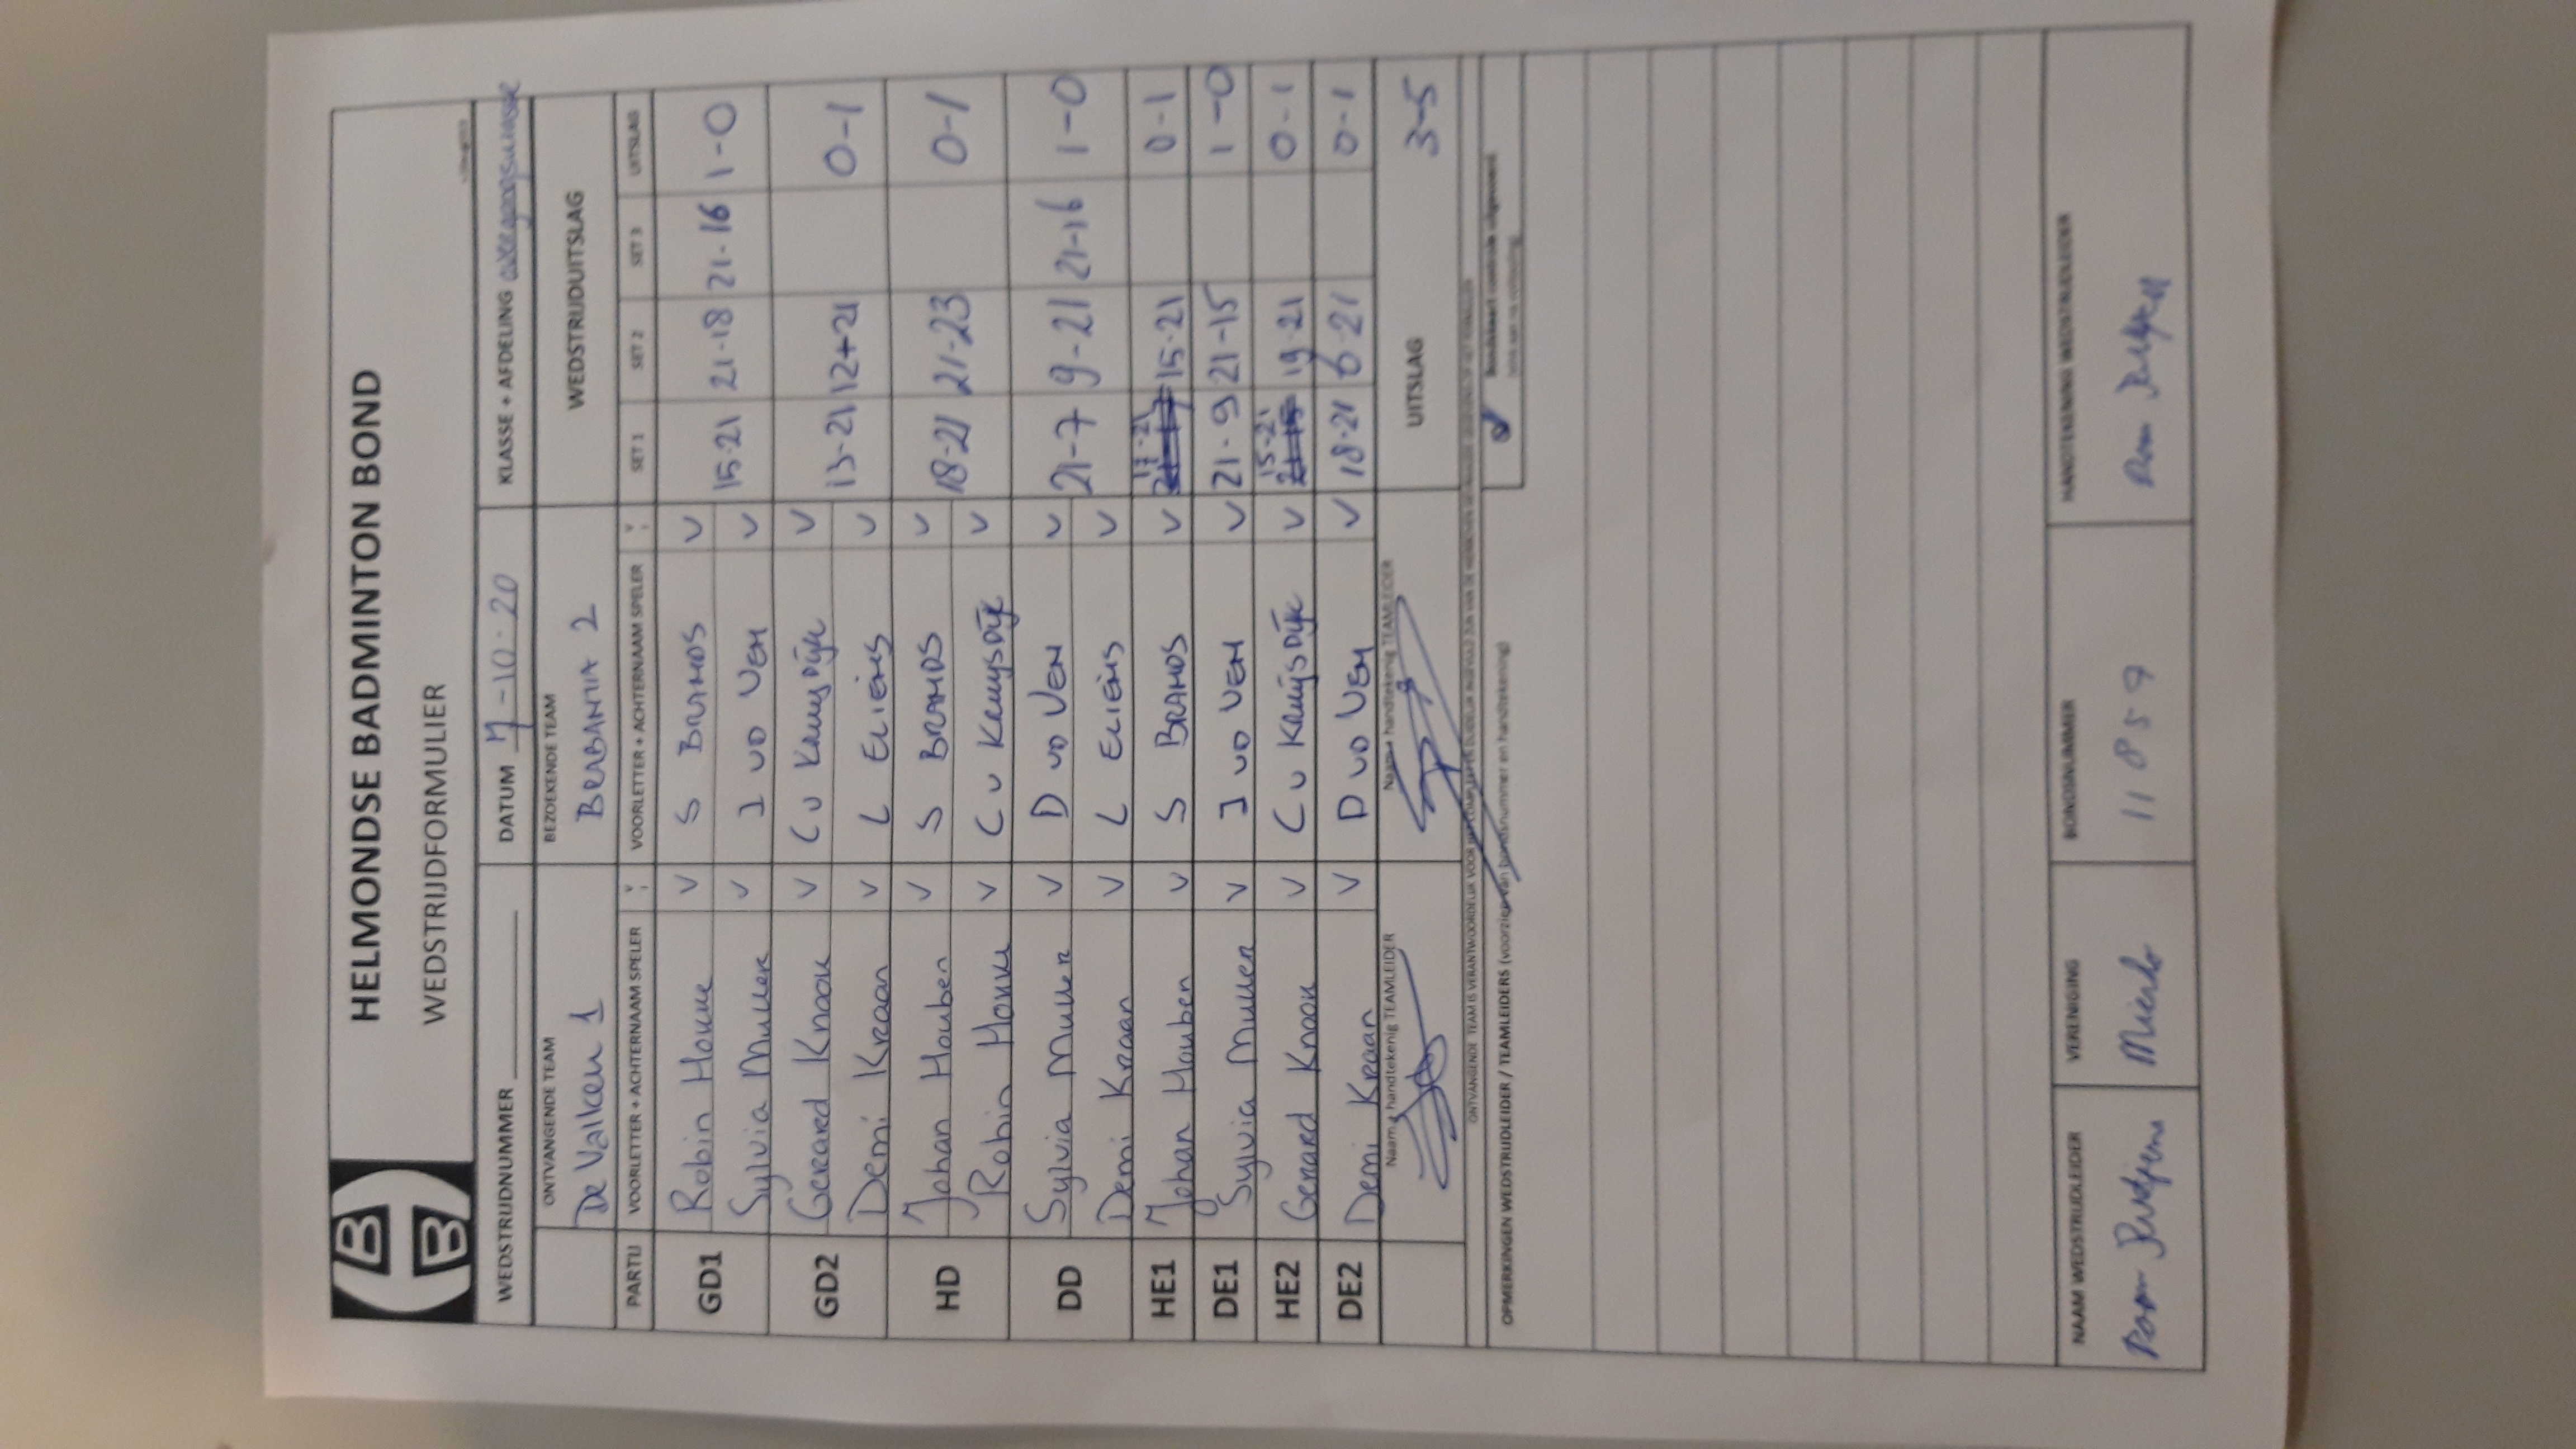 HELMONDSE BADMINTON BOND
WEDSTRIJDFORMULIER
WEDSTRIJDNUMMER DATUM 7-10-20 KLASSE + AFDELING overgangsklasse
ONTVANGENDE TEAM BEZOEKENDE TEAM WEDSTRIJDUITSLAG
De Valken 1 BRABANTIA 2
PARTIJ VOORLETTER + ACHTERNAAM SPELER VOORLETTER + ACHTERNAAM SPELER SET 1 SET 2 SET 3 UITSLAG
GD1 Robin Hokke V S BRANDS V 15-21 21-18 21-16 1-0
Sylvia Muller V J VD VEN V
GD2 Gerard Knook V C v Kruysdijk V 13-21 12-21 0-1
Demi Kraan V L ELIËNS V
HD Johan Houben V S BRANDS V 18-21 21-23 0-1
Robin Hokke V C v Kruysdijk V
DD Sylvia Muller V D VD VEN V 21-7 9-21 21-16 1-0
Demi Kraan V L ELIËNS V
HE1 Johan Houben V S BRANDS V 17-21 15-21 0-1
DE1 Sylvia Muller V J VD VEN V 21-9 21-15 1-0
HE2 Gerard Knook V C v Kruysdijk V 15-21 19-21 0-1
DE2 Demi Kraan V D VD VEN V 18-21 6-21 0-1
Naam + handtekenig TEAMLEIDER Naam + handtekenig TEAMLEIDER UITSLAG 3-5
ONTVANGENDE TEAM IS VERANTWOORDELIJK VOOR HET COMPLEET EN DUIDELIJK INGEVULD ZIJN VAN DE
OPMERKINGEN WEDSTRIJDLEIDER / TEAMLEIDERS (voorzien van bondsnummer en handtekening)
NAAM WEDSTRIJDLEIDER VERENIGING BONDSNUMMER HANDTEKENING WEDSTRIJDLEIDER
Mierlo 11859